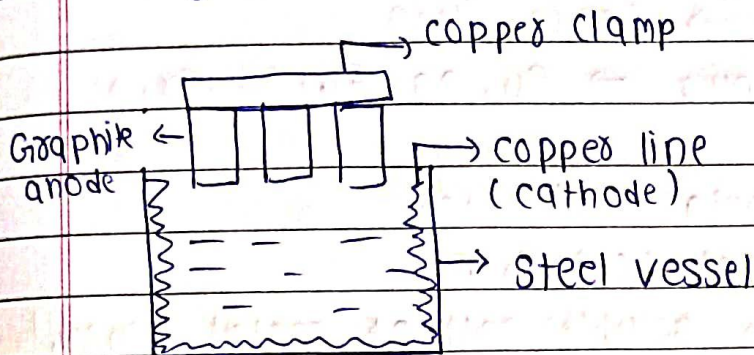 copper clamp
Graphite
anode
copper line
(cathode)
steel vessel